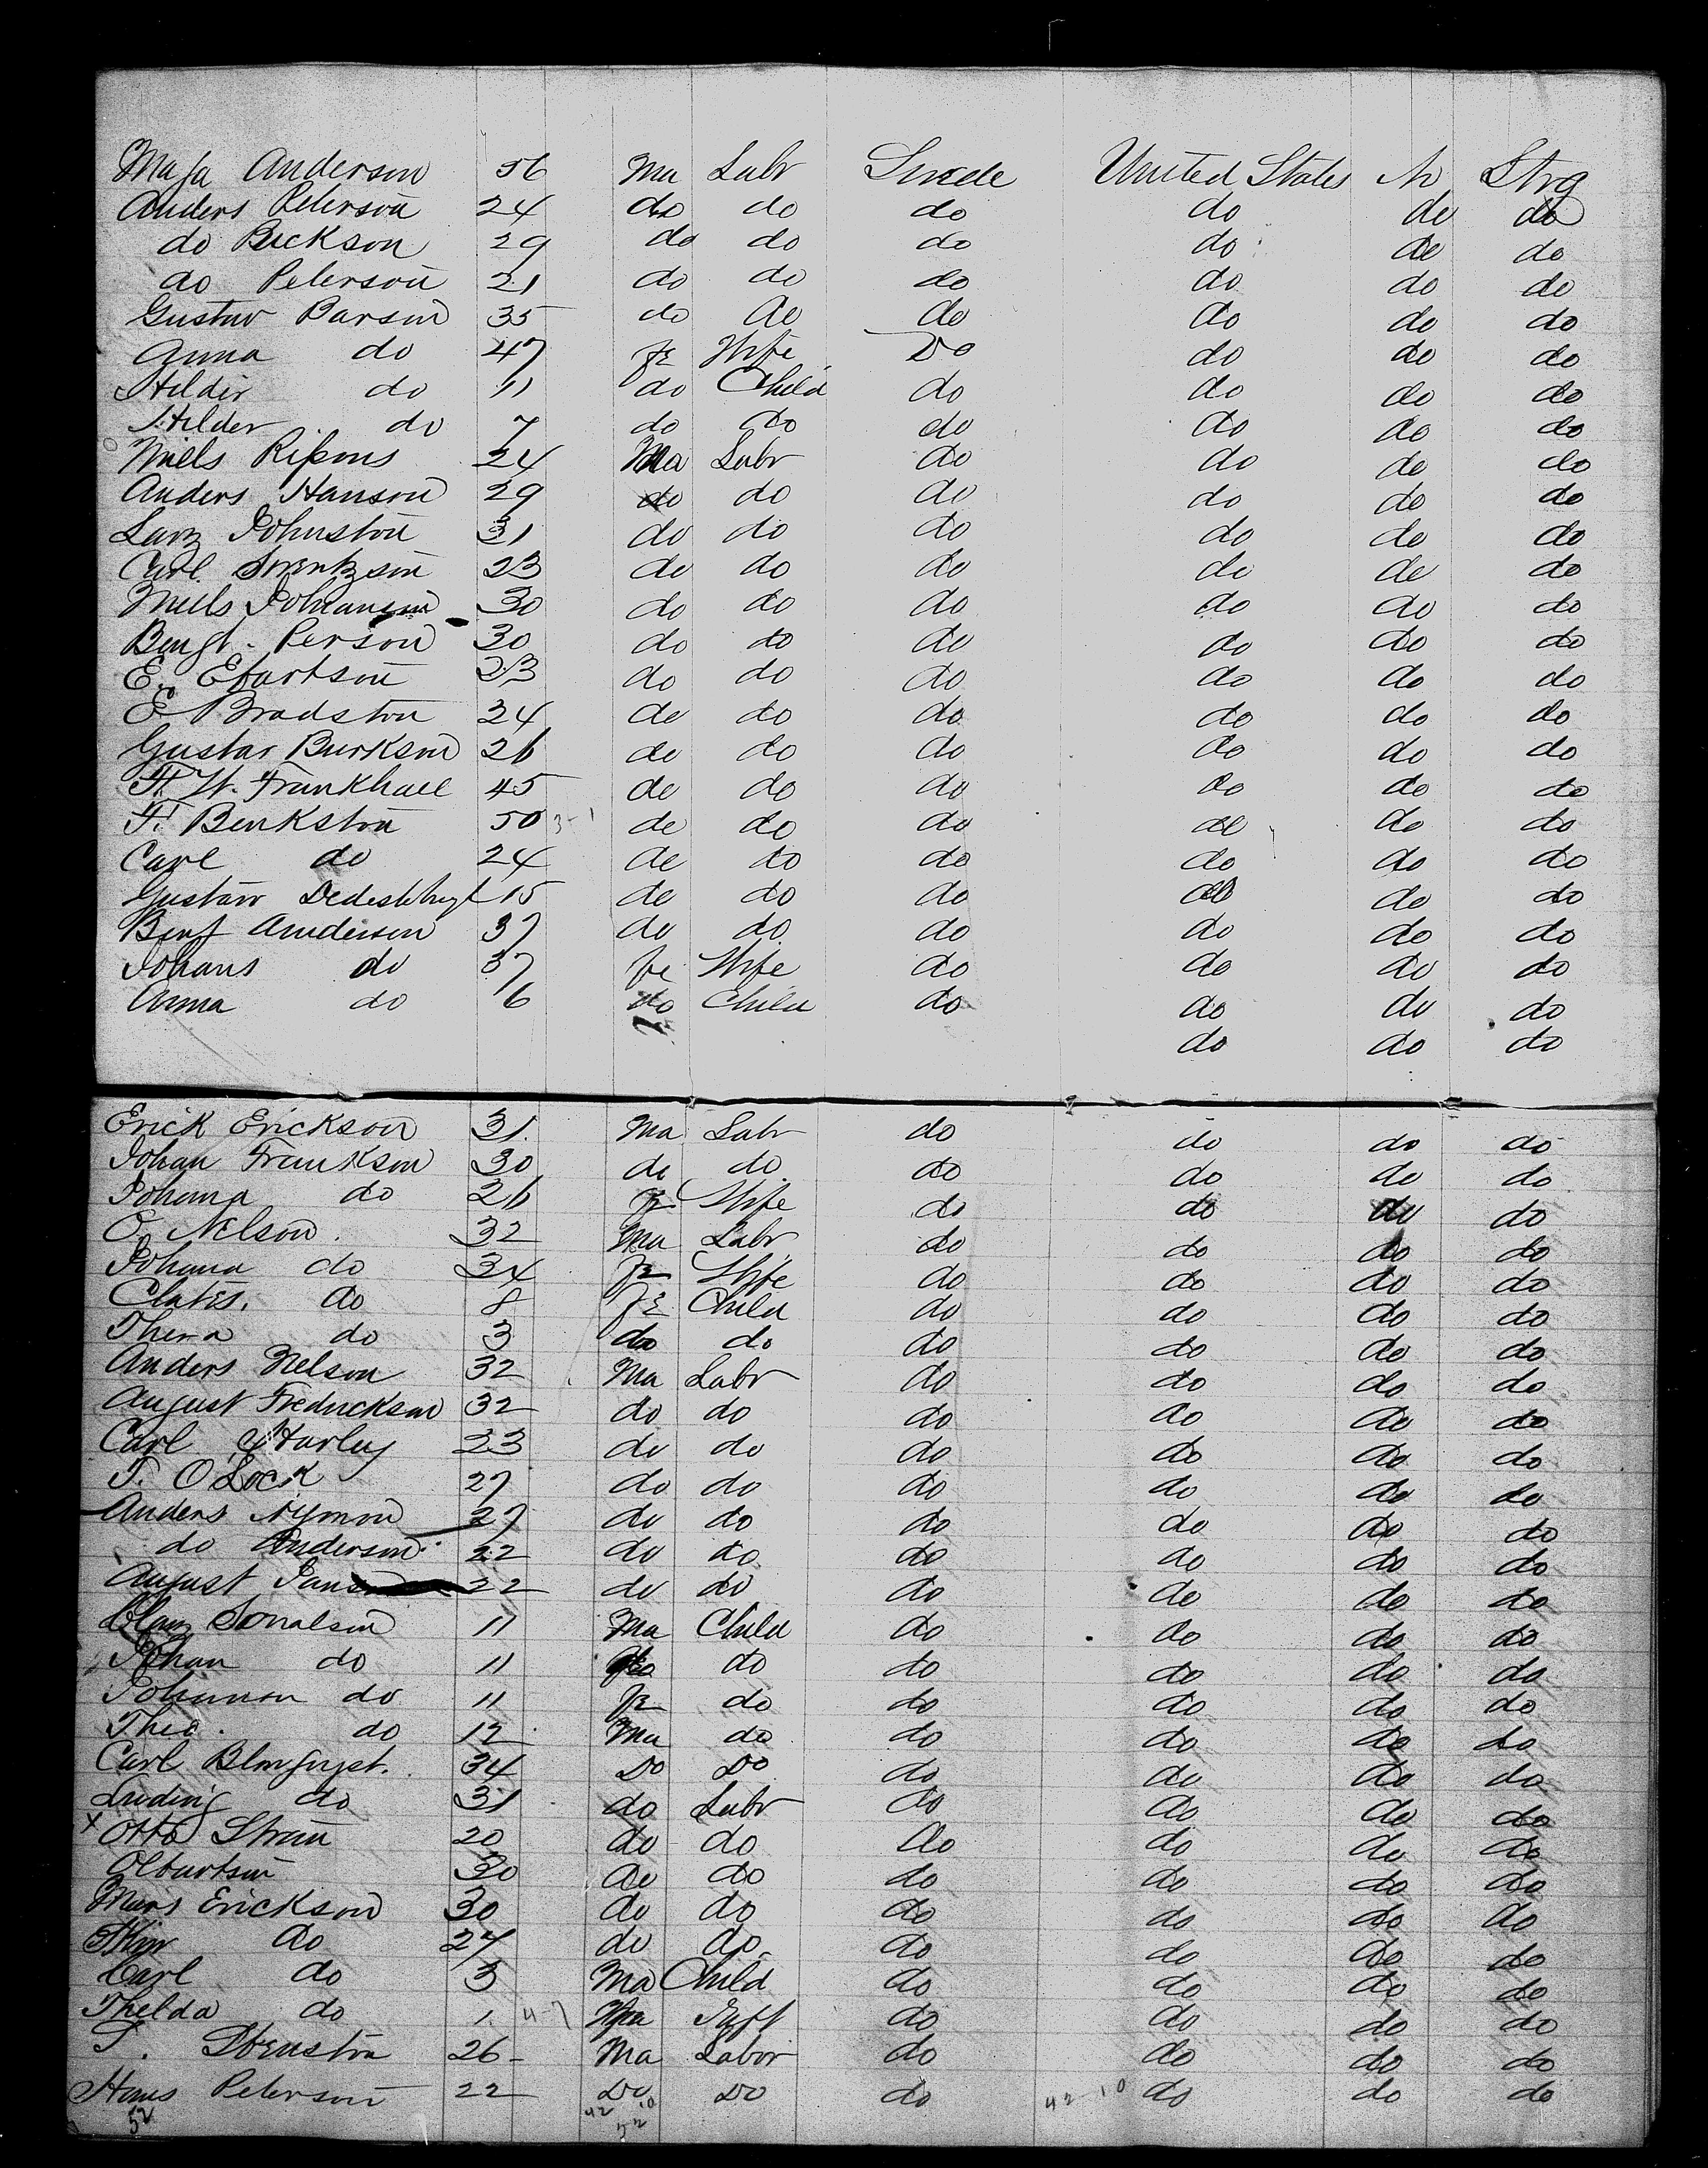 Maja Anderson 56 Ma Labr Swede United States No Strg
Anders Peterson 24 do do do do do do
do Buckson 29 do do do do do do
do Peterson 21 do do do do do do
Gustav Parson 35 do do do do do do
Anna do 47 fe Wife Do do do do
Hilder do 11 do Child do do do do
Hilder do 7 do do do do do do
Niels 24 Ma Labr do do do do
Anders Hanson 29 do do do do do do
Larz Johnston 31 do do do do do do
Carl Swentzson 23 do do do do do do
Niels Johanson 30 do do do do do do
Bengt. Person 30 do do do do do do
E. Efartson 23 do do do do do do
E Bradston 24 do do do do do do
Gustav Burkson 26 do do do do do do
F. W. Frankhael 45 do do do do do do
F. Benkston 50 3-1 do do do do do do
Carl do 24 do do do do do do
Gustav 15 do do do do do do
Benj Amderson 37 do do do do do do
Johans do 37 fe Wife do do do do
Anna do 6 do Child do do do do
do do do
Erick Erickson 31. Ma Labr do do do do
Johan Frankson 30 do do do do do do
Johanna do 26 fe Wife do do do do
O. Nelson. 32 Ma Labr do do do do
Johana do 34 fe Wife do do do do
Clates. do 8 fe Child do do do do
Thera do 3 do do do do do do
Anders Nelson 32 Ma Labr do do do do
August Fredrickson 32 do do do do do do
Carl Harley 23 do do do do do do
T. O'Lock 27 do do do do do do
Anders Nymon 27 do do do do do do
do Anderson 22 do do do do do do
August 22 do do do do do do
Claus Sonalson 11 Ma Child do do do do
Johan do 11 do do do do do do
Johannon do 11 fe do do do do do
Theo. do 12 Ma do do do do do
Carl Blmquyst. 34 Do Do do do do do
Luding do 31 do Labr do do do do
x Otto Stran 20 do do do do do do
Olburtson 30 do do do do do do
Mars Erickson 30 do do do do do do
do 27 do do do do do do
Carl do 3 Ma Child do do do do
Thelda do 1. 4-7 do do do do
T. Stenston 26- Ma Labor do do do do
Hans Peterson 22 Do Do do 42-10 do do do
52 42 10
52